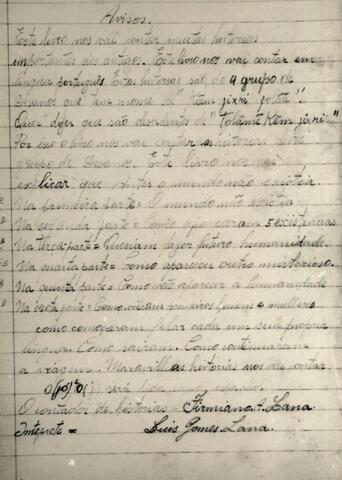 Avisos.
Este livro nos vai contar muitas historias
importantes dos antigos. Este livro nos vai contar em
lingua português. Estas historias são do a grupo de
Desanos que tem nome de
Quer dizer que são descendentes de
Por isso o livro nos vai contar a historia
grupo de Desanos. Este livro nos vai
explicar que antes o mundo não existia
Na primeira parte = O mundo não existia
Na segunda parte = Como apareceram 5 existências
Na terceira parte = Queriam fazer futuro humanidade.
Na quarta parte = como apareceu outro misterioso.
Na quinta parte = Como vão aparecer a humanidade
Na sexta parte = Como viram primeiros homens e mulheres
como começaram falar cada um seu própria
lingua. Como sairam. Como continuaram
a viagem. Maravilhas historias nos vai contar.
será
O contador de historias = Firmiano A. Lana
Interprete = Luis Gomes Lana.